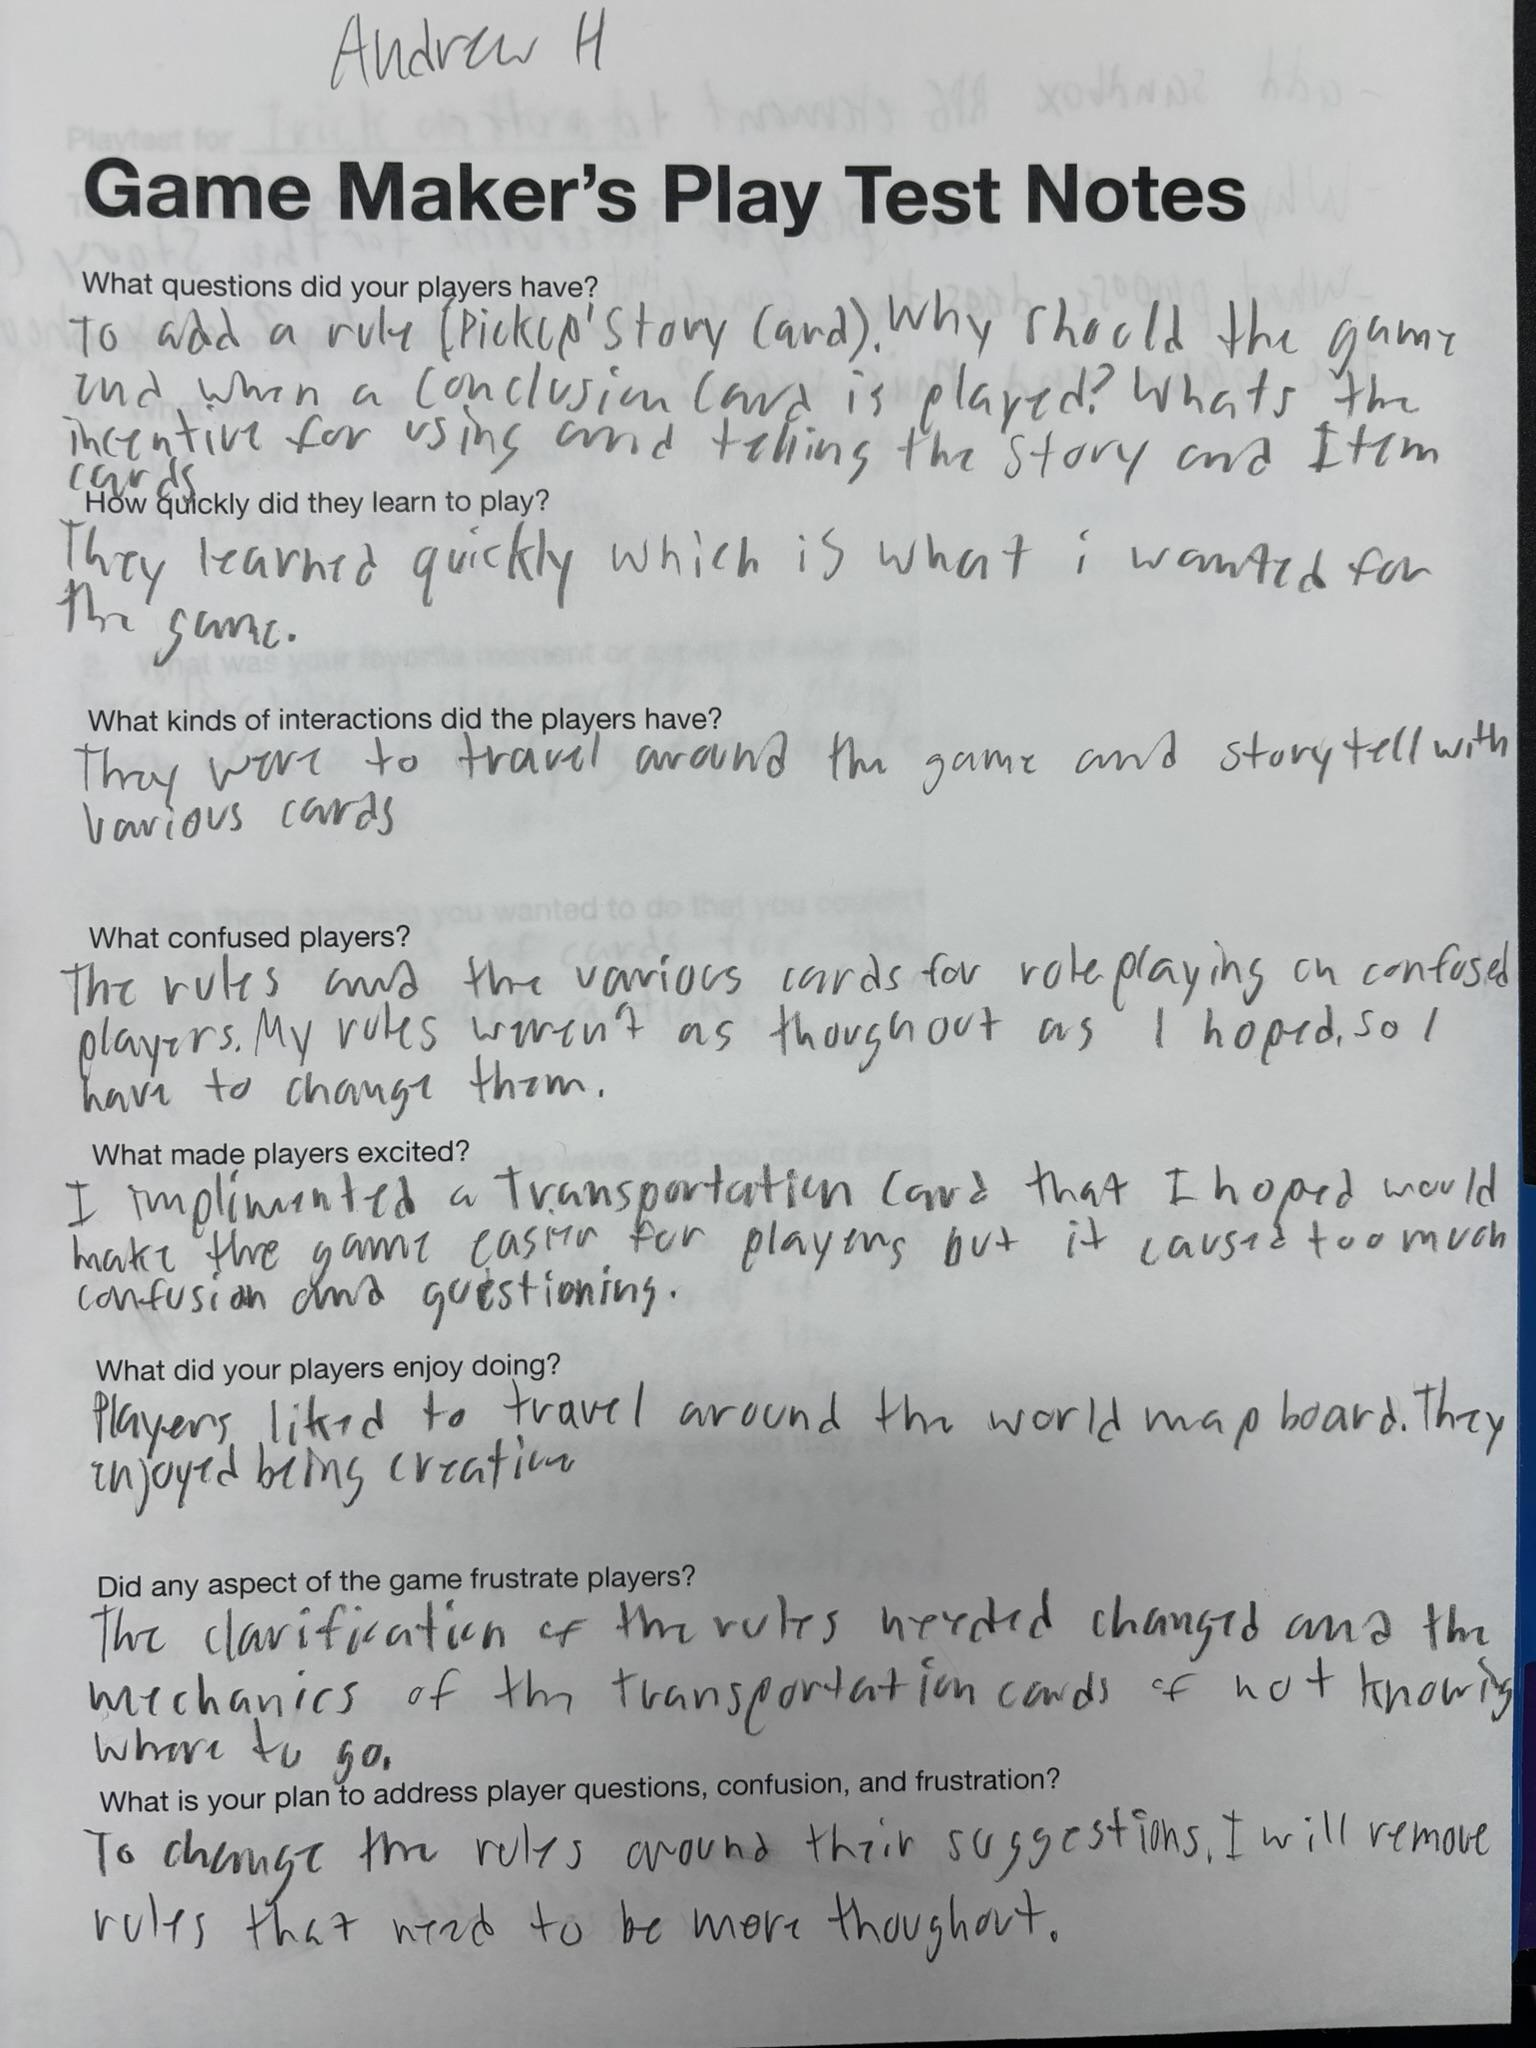 Andrew H
Playtest for
Game Maker's Play Test Notes
What questions did your players have?
To add a rule (Pickup 'Story Card). Why should the game
end when a Conclusion Card is played? Whats the
incentive for using and telling the story and Item
cards
How quickly did they learn to play?
They learned quickly which is what i wanted for
the game.
What kinds of interactions did the players have?
They were to travel around the game and story tell with
various cards
What confused players?
The rules and the various cards for roleplaying on confused
players. My rules weren't as thoughout as I hoped, so I
have to change them.
What made players excited?
I implimented a Transportation Card that I hoped would
make the game easier for players but it caused too much
confusion and questioning.
What did your players enjoy doing?
Players liked to travel around the world map board. They
enjoyed being creative
Did any aspect of the game frustrate players?
The clarification of the rules needed changed and the
mechanics of the transportation cards of not knowing
where to go.
What is your plan to address player questions, confusion, and frustration?
To change the rules around their suggestions. I will remove
rules that need to be more thoughout.